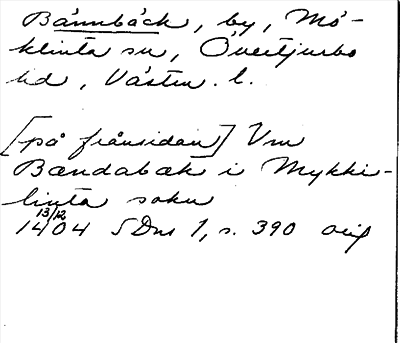 Bännbäck, by, Mö-
klinta sn, Övertjurbo
hd, Västm. l.
[på frånsidan] Vm
Bændabæk i Mykki-
linta sokn
13/12
1404 SDns 1, s. 390 orig